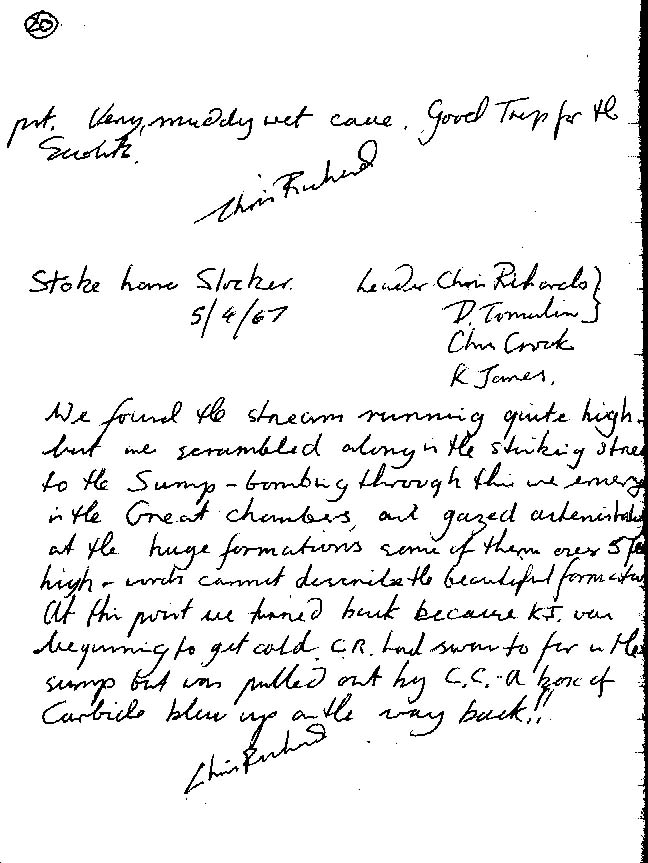 20
pot. Very, muddy wet cave. Good Trip for the
Scouts.
Chris Richard
Stoke Lane Slocker. Leader Chris Richards }
5/4/67 D. Tomulin }
Chris Crook
K James.
We found the stream running quite high.
but we scrambled along in the stinking stre
to the Sump - bombing through this we emerg
in the Great chambers, and gazed astonished
at the huge formations some of them over 5 fe
high - words cannot describe the beautiful formatio
At this point we turned back because K.J. was
beginning to get cold. C.R. had swam to far in the
sump but was pulled out by C.C. - a box of
Carbide blew up on the way back!!
Chris Richard